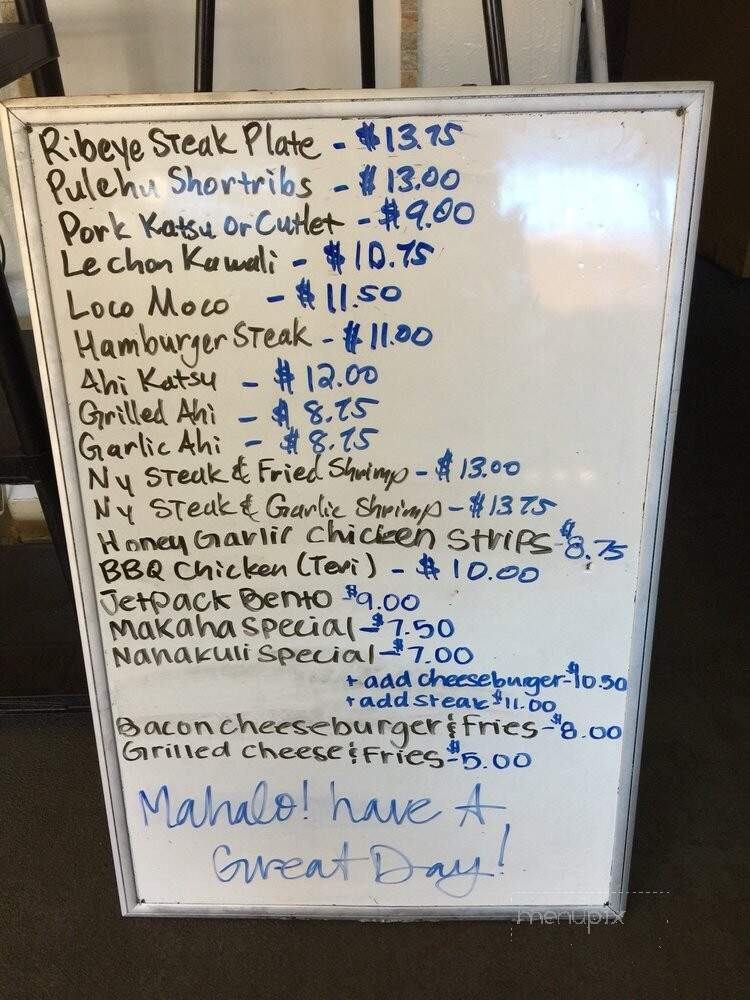 Ribeye Steak Plate - $13.75
Pulehu Shortribs - $13.00
Pork Katsu or Cutlet - $9.00
Lechon Kawali - $10.75
Loco Moco - $11.50
Hamburger Steak - $11.00
Ahi Katsu - $12.00
Grilled Ahi - $8.75
Garlic Ahi - $8.75
Ny Steak & Fried Shrimp - $13.00
Ny Steak & Garlic Shrimp - $13.75
Honey Garlic Chicken Strips - $8.75
BBQ Chicken (Teri) - $10.00
Jetpack Bento $9.00
Makaha Special - $7.50
Nanakuli Special - $7.00
+ add cheeseburger - $10.50
+ add steak $11.00
Bacon cheeseburger & Fries - $8.00
Grilled cheese & Fries - $5.00
Mahalo! have A
Great Day!
menupix